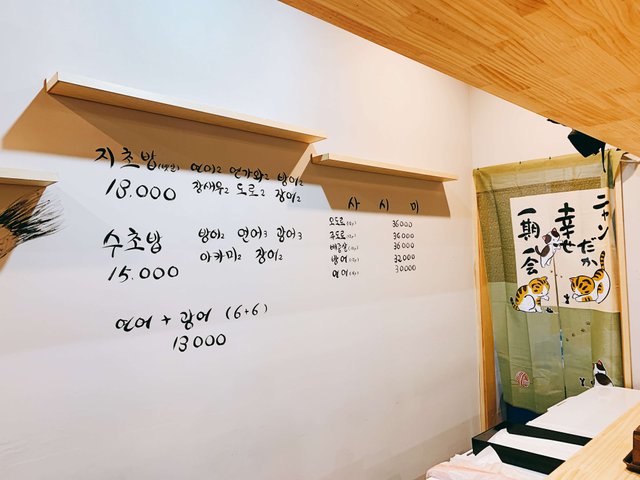 지초밥 연어2 연가와2 방어2
장새우2 도로2 장어2
18.000
수초밥 방어2 연어3 광어3
아카미2 장어2
15.000
연어 + 광어 (6+6)
13000
사 시 미
오도로 36000
주도로 36000
배꼽살 36000
방어 32000
연어 30000
ニャン
だか
幸せ
一期一会